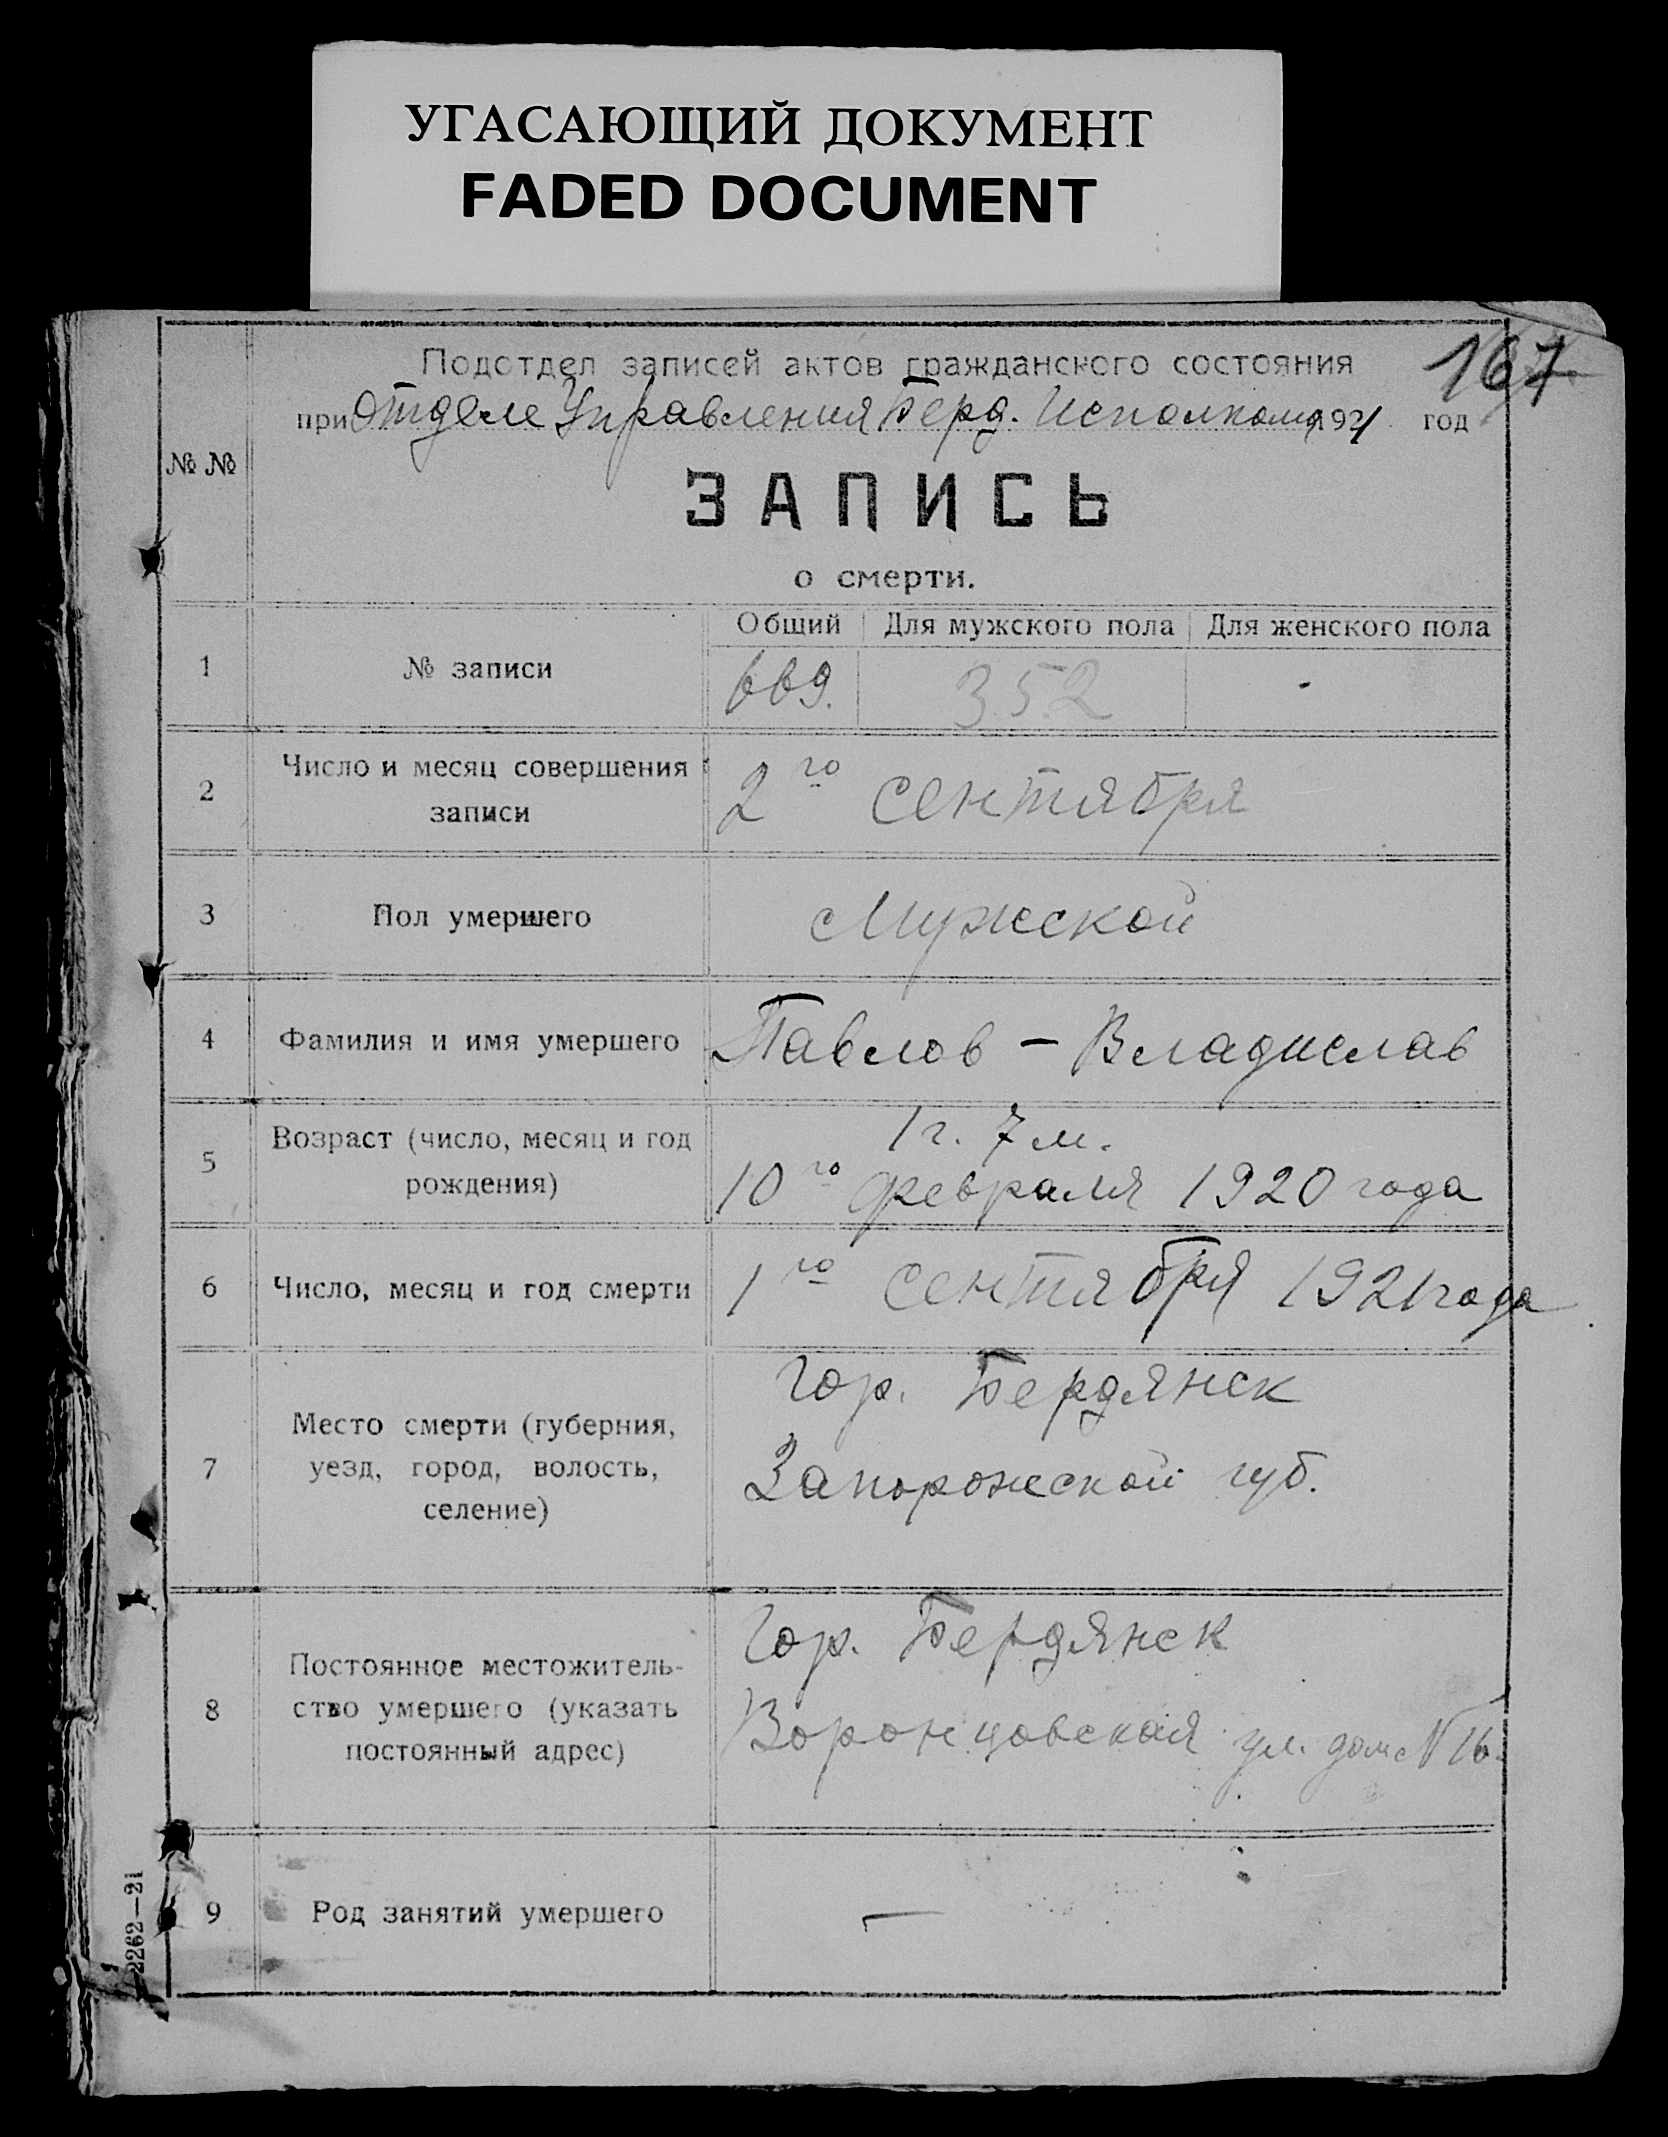 УГАСАЮЩИЙ ДОКУМЕНТ
FADED DOCUMENT
167
Подотдел записей актов гражданского состояния
при Отделе Управления Берд. Исполкома 1921 год
№ №
ЗАПИСЬ
о смерти.
Общий Для мужского пола Для женского пола
1 № записи 669. 352 -
2 Число и месяц совершения
записи
2го сентября
3 Пол умершего Мужской
4 Фамилия и имя умершего Павлов - Владислав
5 Возраст (число, месяц и год
рождения)
1 г. 7 м.
10го февраля 1920 года
6 Число, месяц и год смерти 1го сентября 1921 года
7 Место смерти (губерния,
уезд, город, волость,
селение)
Гор. Бердянск
Запорожской губ.
8 Постоянное местожитель-
ство умершего (указать
постоянный адрес)
Гор. Бердянск
Воронцовская ул. дом № 16.
9 Род занятий умершего —
2262—21